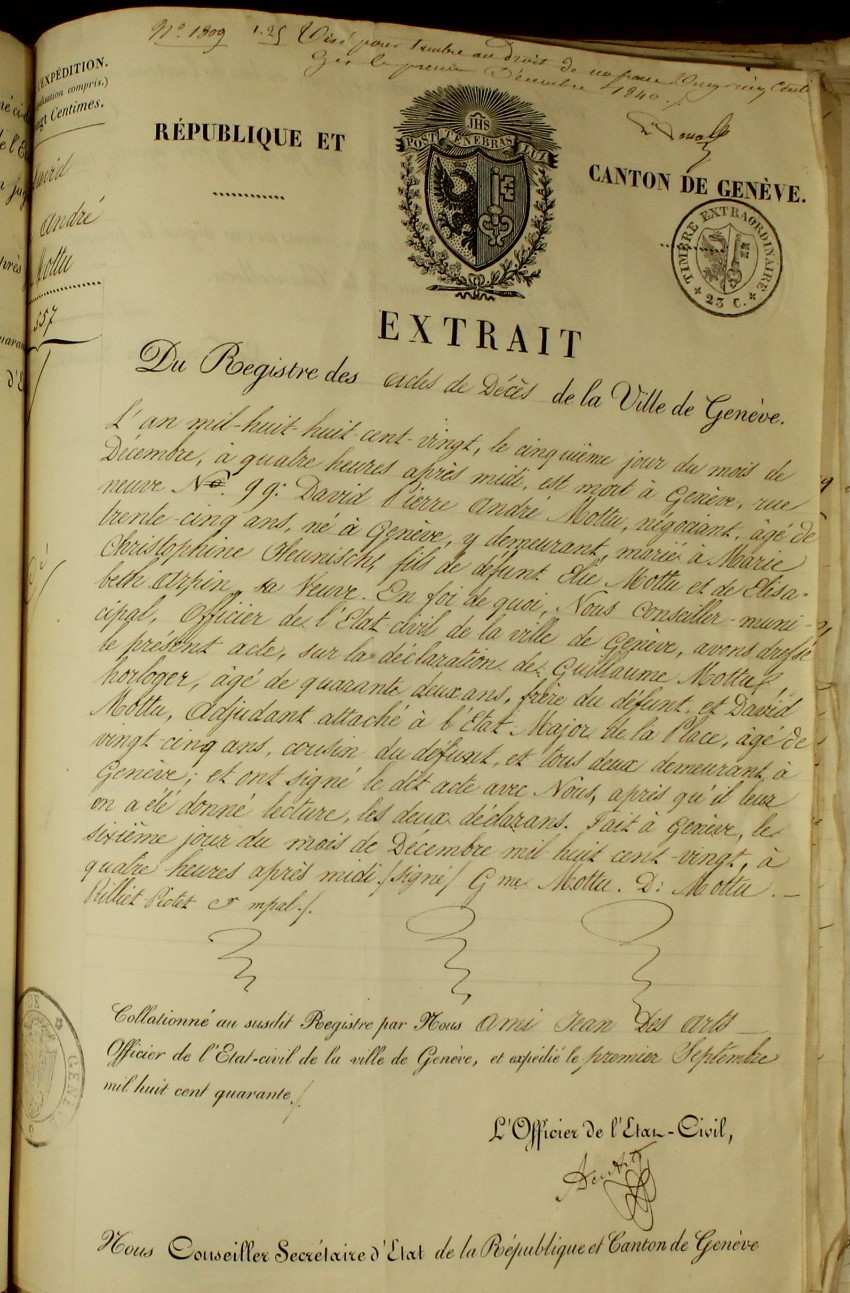 No 1809 1.25 Visé pour timbre au droit de un franc Vingt cinq Cent
Gex le premier Décembre 1840.
EXPÉDITION.
compris.)
Centimes.
David
André
Mottu
557
RÉPUBLIQUE ET
CANTON DE GENÈVE.
JHS
POST TENEBRAS LUX
TIMBRE EXTRAORDINAIRE
23 C.
EXTRAIT
Du Registre des actes de Décès de la Ville de Genève.
L'an mil-huit huit-cent-vingt, le cinquième jour du mois de
Décembre, à quatre heures après midi, est mort à Genève, rue
neuve No. 99: David Pierre André Mottu, négociant, âgé de
trente-cinq ans, né à Genève, y demeurant, marié à Marie
Christophine fils de défunt Elie Mottu et de Elisa-
beth Arpin, sa Veuve. En foi de quoi, Nous Conseiller-muni-
cipal, Officier de l'Etat civil de la ville de Genève, avons dressé
le présent acte, sur la déclaration de Guillaume Mottu,
horloger, âgé de quarante deux ans, frère du défunt, et David
Mottu, Adjudant attaché à l'Etat Major de la Place, âgé de
vingt-cinq ans, cousin du défunt, et tous deux demeurant à
Genève; et ont signé le dit acte avec Nous, après qu'il leur
en a été donné lecture, les deux déclarans. Fait à Genève, le
sixième jour du mois de Décembre mil huit cent-vingt, à
quatre heures après midi./signé/ Gme Mottu. D: Mottu. —
Rilliet Pictet Cr mpal./.
Collationné au susdit Registre par Nous Ami Jean Des Arts
Officier de l'Etat-civil de la ville de Genève, et expédié le premier Septembre
mil huit cent quarante./.
L'Officier de l'Etat-Civil,
Nous Conseiller Secrétaire d'Etat de la République et Canton de Genève